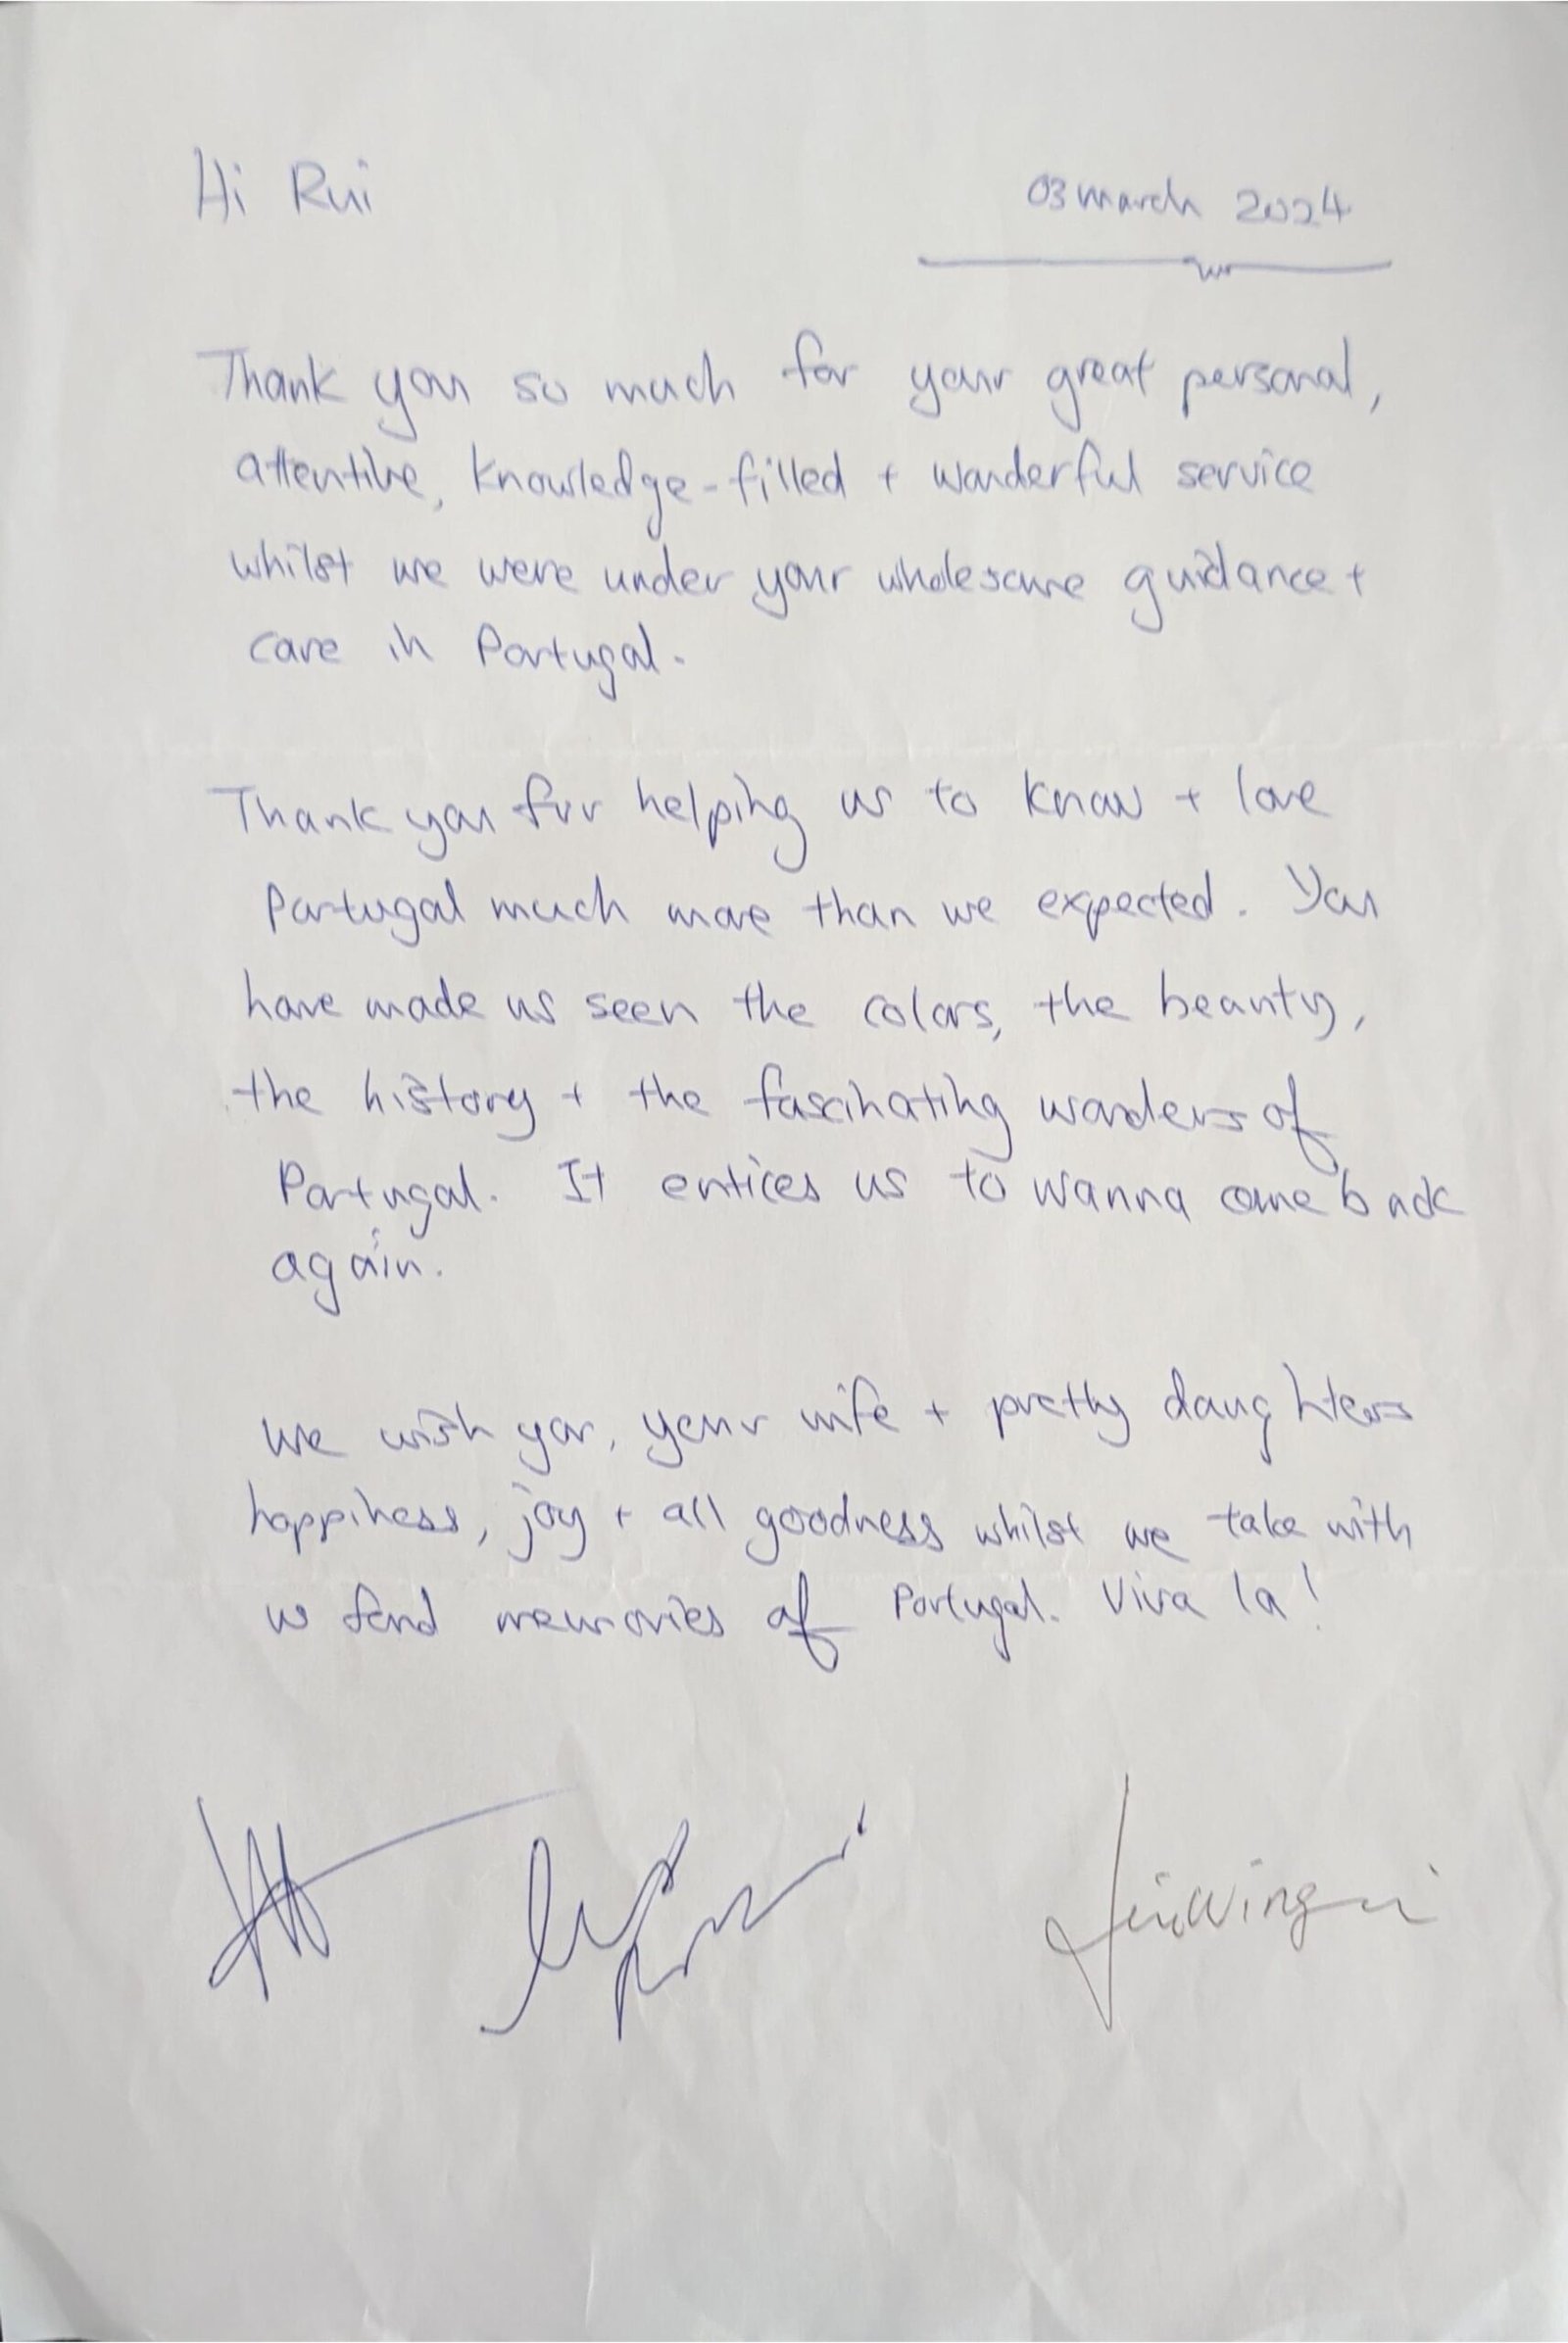 Hi Rui
03 march 2024
Thank you so much for your great personal,
attentive, knowledge-filled + wonderful service
whilst we were under your wholesome guidance +
care in Portugal.
Thank you for helping us to know + love
Portugal much more than we expected. You
have made us seen the colors, the beauty,
the history + the fascinating wonders of
Portugal. It entices us to wanna come back
again.
We wish you, your wife + pretty daughters
happiness, joy + all goodness whilst we take with
us fond memories of Portugal. Viva la!